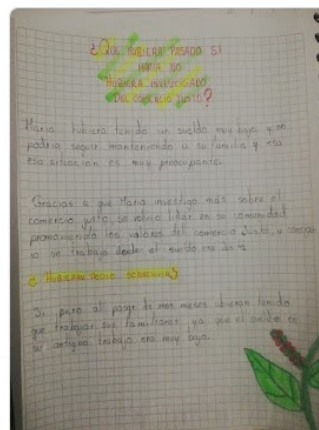 ¿QUE HUBIERA PASADO SI
MARIA NO
HUBIERA INVESTIGADO
DEL COMERCIO JUSTO?
Maria hubiera tenido un sueldo muy bajo y no
podria seguir manteniendo a su familia y esa
esa situación es muy preocupante.
Gracias a que Maria investigo más sobre el
comercio justo, se volvio lider en su comunidad
promoviendo los valores del comercio Justo, y
su trabajo donde el sueldo era
¿ HUBIERAN
Si pero al pasar de mos meses ubieran tenido
que trabajar sus familiares ya que el sueldo en
su antiguo trabajo era muy bajo.